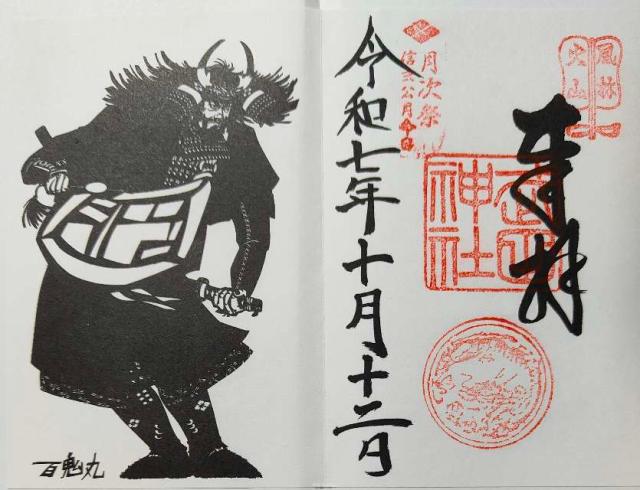 風林
火山
奉拝
武田
神社
月次祭
信玄公月命日
令和七年十月十二日
百鬼丸